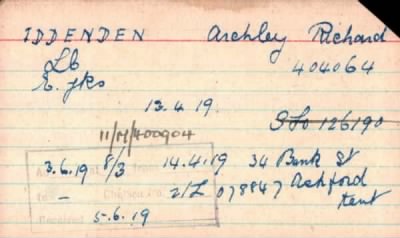 IDDENDEN Archley Richard
Lb 404064
E. Yks
13.4.19. SLO 126190
11/M/400904
3.6.19 8/3 14.4.19 34 Bank St
— 2/L 078847 Ashford
Kent
5.6.19